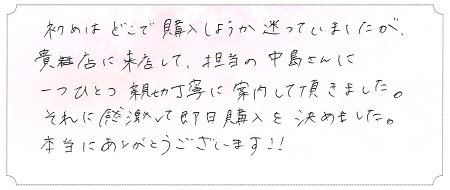 初めは どこで購入しようか迷っていましたが、
貴店に来店して、担当の中島さんに
一つひとつ親切丁寧に案内して頂きました。
それに感激して即日購入を決めました。
本当にありがとうございます!!